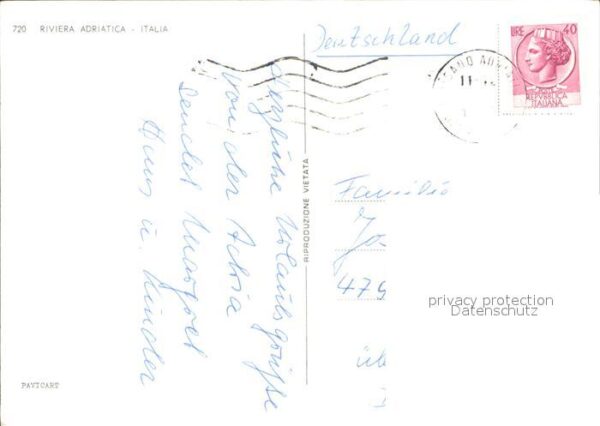 720 RIVIERA ADRIATICA - ITALIA
Deutschland
LIRE 40
REPUBBLICA
ITALIANA
11
Herzliche Urlaubsgrüße
von der Adria
sendet Margret
Hans u. Kinder
RIPRODUZIONE VIETATA
Familie
479
privacy protection
Datenschutz
PAVICART